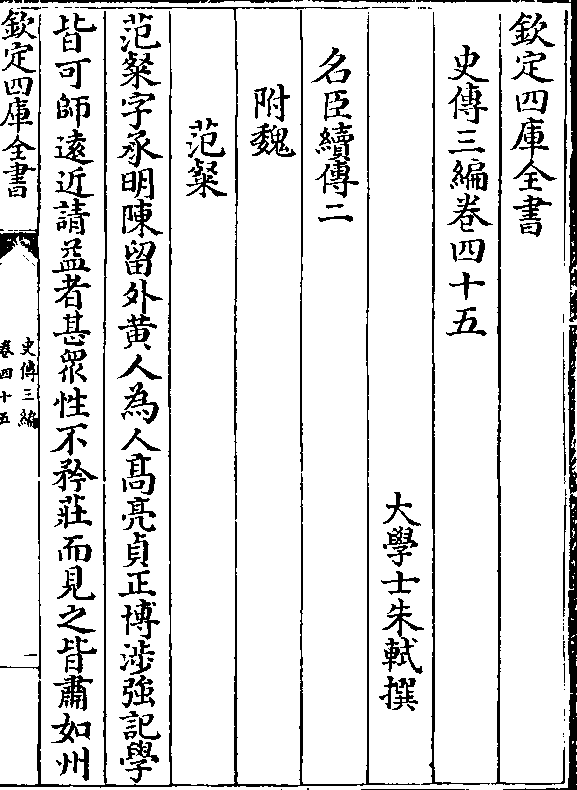 欽定四庫全書
史傳三編卷四十五
大學士朱軾撰
名臣續傳二
附魏
范粲
范粲字承明陳留外黄人為人髙亮貞正博涉強記學
皆可師逺近請益者甚衆性不矜莊而見之皆肅如州
欽定四庫全書
史傳三編
卷四十五
一